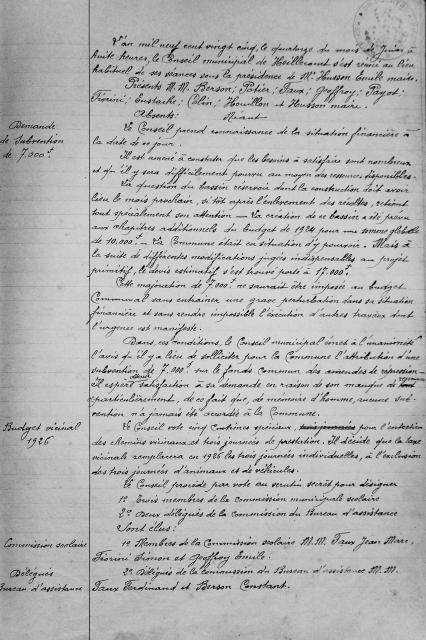 L'an mil neuf cent vingt cinq, le quatorze du mois de Juin à
huite heures, le Conseil municipal de Hoéllecourt s'est réuni au lieu
habituel de ses séances sous la présidence de Mr Husson Emile maire.
Présents M.M. Berson; Potier; Taux; Geoffroy; Payot;
Fiorini; Eustache; Colin; Houillon et Husson maire.
Absents: Néant
Demande
de Subvention
de 7.000f
Le Conseil prend connaissance de la situation financière à
la date de ce jour.
Il est amené à constater que les besoins à satisfaire sont nombreux
et qu'il y sera difficilement pourvu au moyen des ressources disponibles.
La question du bassin réservoir dont la construction doit avoir
lieu le mois prochain, si tôt après l'enlèvement des récoltes, retient
tout spécialement son attention – La création de ce bassin a été prévu
aux chapitres additionnels du budget de 1924 pour une somme globale
de 10.000f – La Commune était en situation d'y pourvoir. Mais à
la suite de différentes modifications jugées indispensables au projet
primitif, le devis estimatif s'est trouvé porté à 17.000f.
Cette majoration de 7.000f ne saurait être imposée au budget
Communal sans entraîner une grave perturbation dans sa situation
financière et sans rendre impossible l'exécution d'autres travaux dont
l'urgence est manifeste.
Dans ces conditions, le Conseil municipal émet à l'unanimité
l'avis qu'il y a lieu de solliciter pour la Commune l'attribution d'une
subvention de 7.000f sur le fonds commun des amendes de répression –
il espère satisfaction à sa demande en raison de son manque de
et particulièrement, de ce fait que, de mémoire d'homme, aucune sub-
vention n'a jamais été accordée à la Commune.
Budget vicinal
1926
Le Conseil vote cinq centimes spéciaux, trois journées pour l'entretien
des chemins vicinaux et trois journées de prestation. Il décide que la taxe
vicinale remplacera en 1926 les trois journées individuelles, à l'exclusion
des trois journées d'animaux et de véhicules.
Le Conseil procède par vote au scrutin secret pour désigner
1° Trois membres de la Commission municipale scolaire
2° Deux délégués de la Commission du Bureau d'assistance
Sont élus:
Commission scolaire
1° Membres de la Commission scolaire M.M. Taux Jean Marc,
Fiorini Simon et Geoffroy Emile.
Délégués
Bureau d'assistance
2° Délégués de la Commission du Bureau d'assistance M.M.
Taux Ferdinand et Berson Constant.